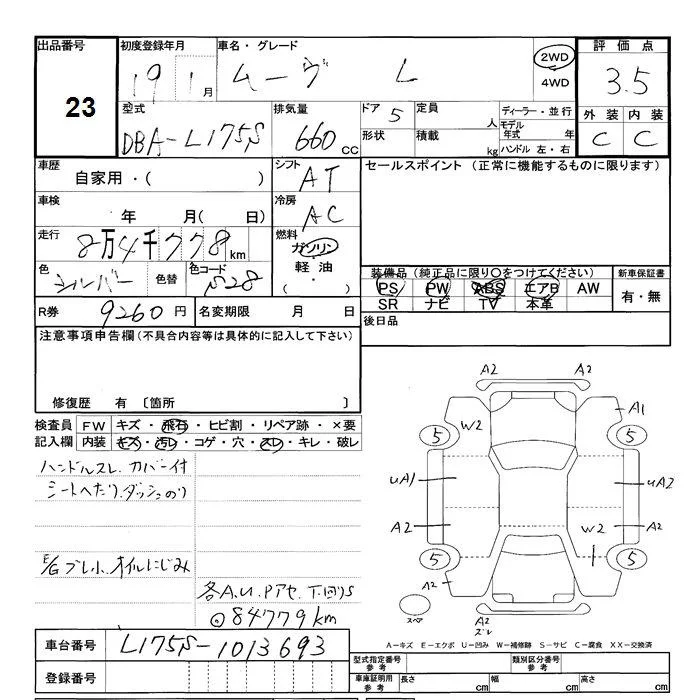 出品番号 初度登録年月 車名・グレード 評価点
23 19 1月 ムーヴ L 2WD 4WD 3.5
外装 内装
C C
型式 排気量 ドア 5 定員 人 ディーラー・並行
DBA-L175S 660cc 形状 積載 kg モデル年式 年
ハンドル 左・右
車歴 シフト セールスポイント (正常に機能するものに限ります)
自家用・( ) AT
車検 冷房
年 月( 日) AC
走行 燃料
8万4千778km ガソリン
軽油
( ・ )
色 色替 色コード 装備品 (純正品に限り○をつけてください) 新車保証書
シルバー S28 PS PW ABS エアB AW 有・無
SR ナビ TV 本革
R券 9260円 名変期限 月 日 後日品
注意事項申告欄(不具合内容等は具体的に記入して下さい)
修復歴 有 〔箇所 〕
検査員 FW キズ・飛石・ヒビ割・リペア跡・×要
記入欄 内装 キズ・汚レ・コゲ・穴・スレ・キレ・破レ
ハンドルスレ.カバー付
シートへたり.ダッシュのり
E/Gブレ小.オイルにじみ
各A.U.Pアセ.下回りS
84779km
A2 A2
W2 A1
5 5
uA1 uA2
A2 W2 A2
5 5
A2
スペア A2
スレ
A-キズ E-エクボ U-凹み W-補修跡 S-サビ C-腐食 XX-交換済
車台番号 L175S-1013693
登録番号
型式指定番号参考 類別区分番号参考
車庫証明用参考 長さ cm 幅 cm 高さ cm